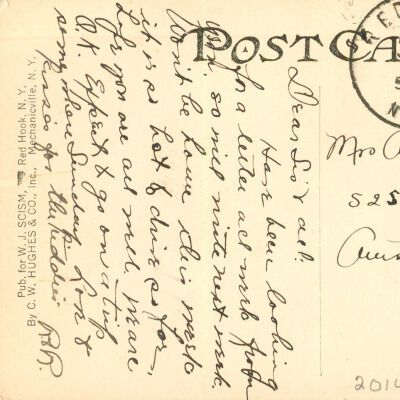 POST CA
Dear Sis & all:
Have been looking
for a letter all week from
you, so will write next week.
Wont be home this week
it is so hot & dives for,
hope you are all well, we are
O.K. Expect to go on a trip
some where Sunday. Love &
kisses for the kiddies
Pub. for W. J. SCISM, Red Hook, N. Y.
By C. W. HUGHES & CO., Inc., Mechanicville, N. Y.
RED
N
Mrs
525
2014